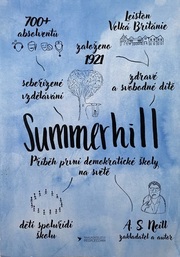 700+
absolventů
Leiston
Velká Británie
založeno
1921
sebeřízené
vzdělávání
zdravé
a svobodné dítě
Summerhill
Příběh první demokratické školy
na světě
děti spoluřídí
školu
A. S. Neill
zakladatel a autor